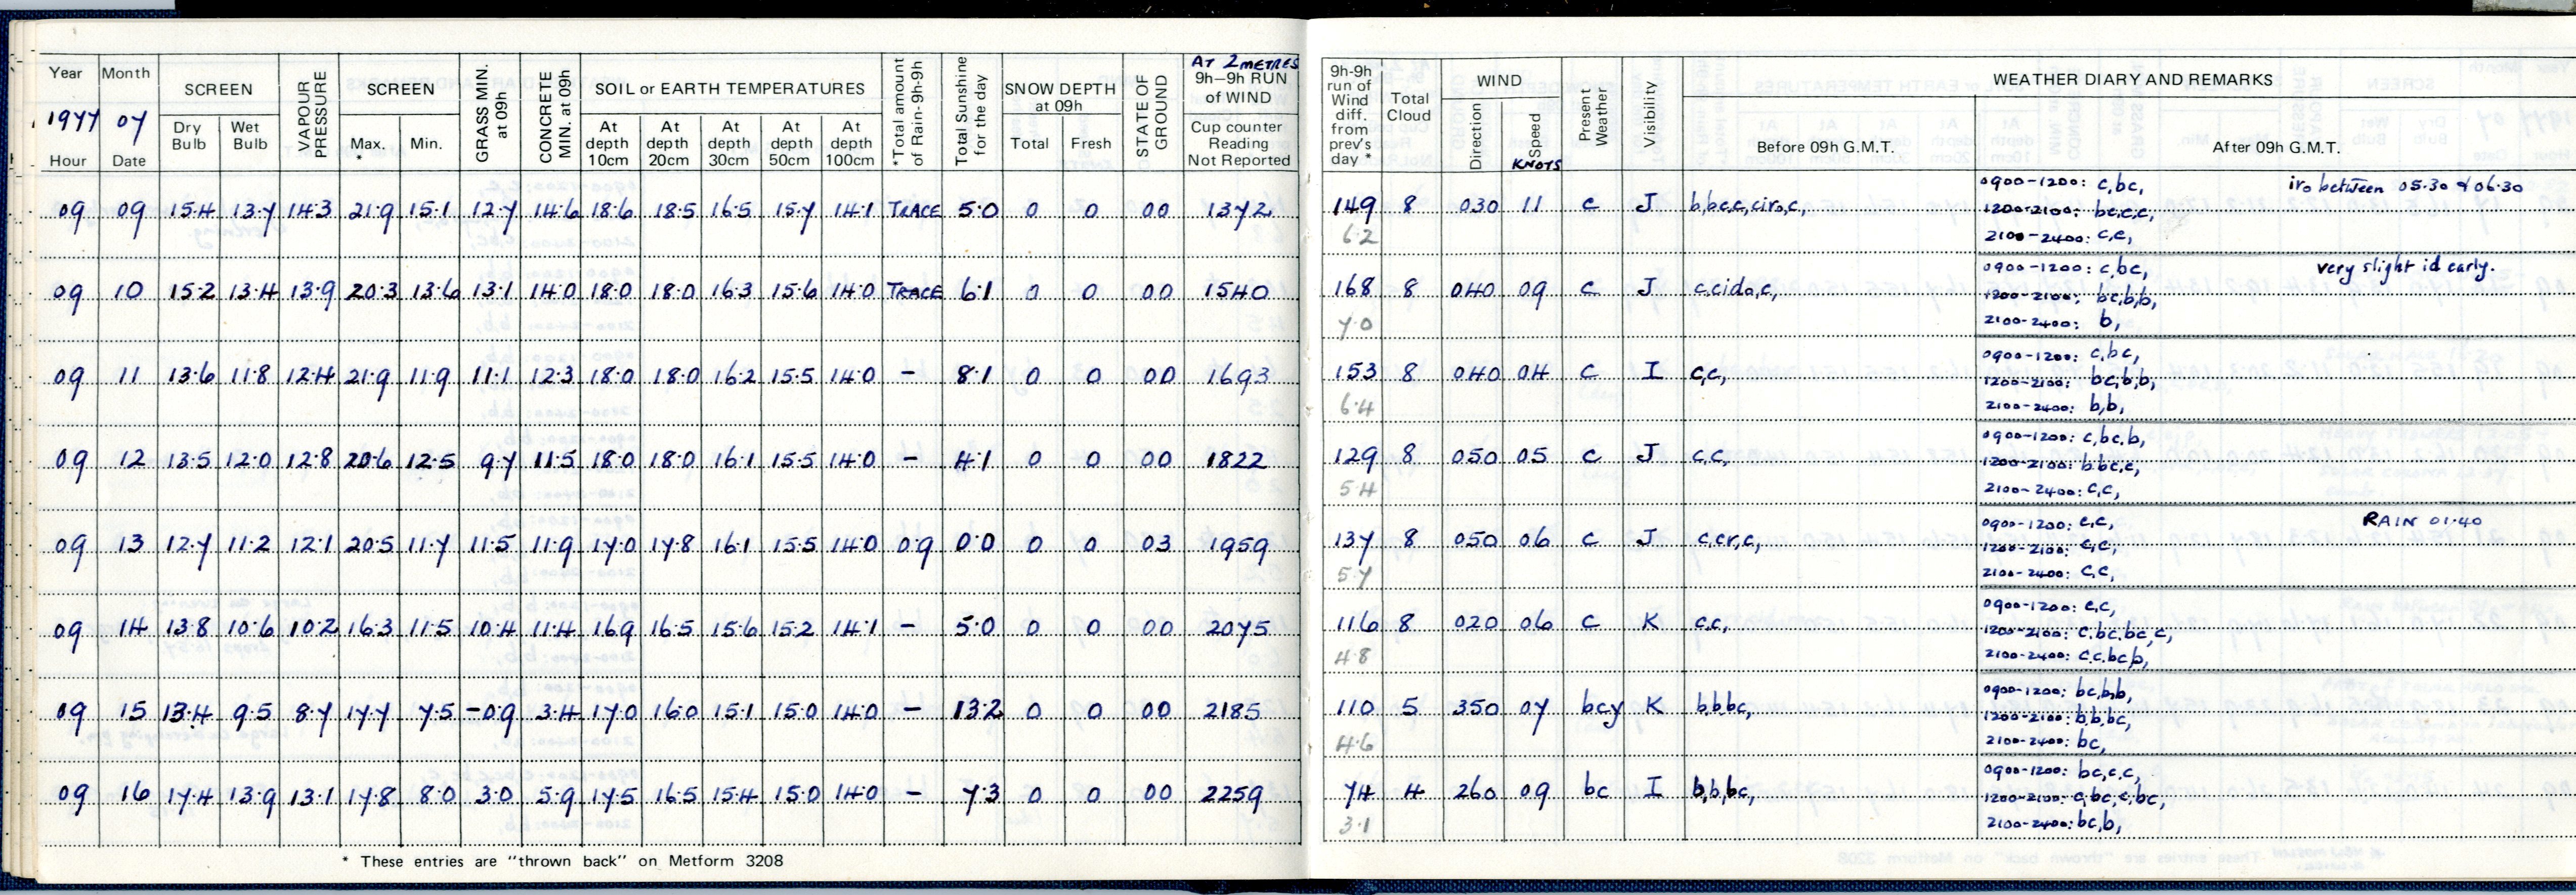 AT 2 METRES
Year Month SCREEN VAPOUR PRESSURE SCREEN GRASS MIN. at 09h CONCRETE MIN. at 09h SOIL or EARTH TEMPERATURES *Total amount of Rain-9h-9h Total Sunshine for the day SNOW DEPTH at 09h STATE OF GROUND 9h–9h RUN of WIND 9h-9h run of Wind diff. from prev's day * Total Cloud WIND Present Weather Visibility WEATHER DIARY AND REMARKS
1977 07
Hour Date Dry Bulb Wet Bulb Max. * Min. At depth 10cm At depth 20cm At depth 30cm At depth 50cm At depth 100cm Total Fresh Cup counter Reading Not Reported Direction Speed KNOTS Before 09h G.M.T. After 09h G.M.T.
0900-1200: c,bc, iro between 05.30 & 06.30
09 09 15.4 13.7 14.3 21.9 15.1 12.7 14.6 18.6 18.5 16.5 15.7 14.1 TRACE 5.0 0 0 00 1372 149 8 030 11 c J b,bc,c,ciro,c, 1200-2100: bc,c,c,
6.2 2100-2400: c,c,
0900-1200: c,bc, very slight id early.
09 10 15.2 13.4 13.9 20.3 13.6 13.1 14.0 18.0 18.0 16.3 15.6 14.0 TRACE 6.1 0 0 00 1540 168 8 040 09 c J c,cido,c, 1200-2100: bc,b,b,
7.0 2100-2400: b,
0900-1200: c,bc,
09 11 13.6 11.8 12.4 21.9 11.9 11.1 12.3 18.0 18.0 16.2 15.5 14.0 – 8.1 0 0 00 1693 153 8 040 04 c I c,c, 1200-2100: bc,b,b,
6.4 2100-2400: b,b,
0900-1200: c,bc,b,
09 12 13.5 12.0 12.8 20.6 12.5 9.7 11.5 18.0 18.0 16.1 15.5 14.0 – 4.1 0 0 00 1822 129 8 050 05 c J c,c, 1200-2100: b,bc,c,
5.4 2100-2400: c,c,
0900-1200: c,c, RAIN 01.40
09 13 12.7 11.2 12.1 20.5 11.7 11.5 11.9 17.0 17.8 16.1 15.5 14.0 0.9 0.0 0 0 03 1959 137 8 050 06 c J c,cr,c, 1200-2100: c,c,
5.7 2100-2400: c,c,
0900-1200: c,c,
09 14 13.8 10.6 10.2 16.3 11.5 10.4 11.4 16.9 16.5 15.6 15.2 14.1 – 5.0 0 0 00 2075 116 8 020 06 c K c,c, 1200-2100: c,bc,bc,c,
4.8 2100-2400: c,c,bc,b,
0900-1200: bc,b,b,
09 15 13.4 9.5 8.7 17.7 7.5 -0.9 3.4 17.0 16.0 15.1 15.0 14.0 – 13.2 0 0 00 2185 110 5 350 07 bcy K b,b,bc, 1200-2100: b,b,bc,
4.6 2100-2400: bc,
0900-1200: bc,c,c,
09 16 17.4 13.9 13.1 17.8 8.0 3.0 5.9 17.5 16.5 15.4 15.0 14.0 – 7.3 0 0 00 2259 74 4 260 09 bc I b,b,bc, 1200-2100: c,bc,c,bc,
3.1 2100-2400: bc,b,
* These entries are "thrown back" on Metform 3208